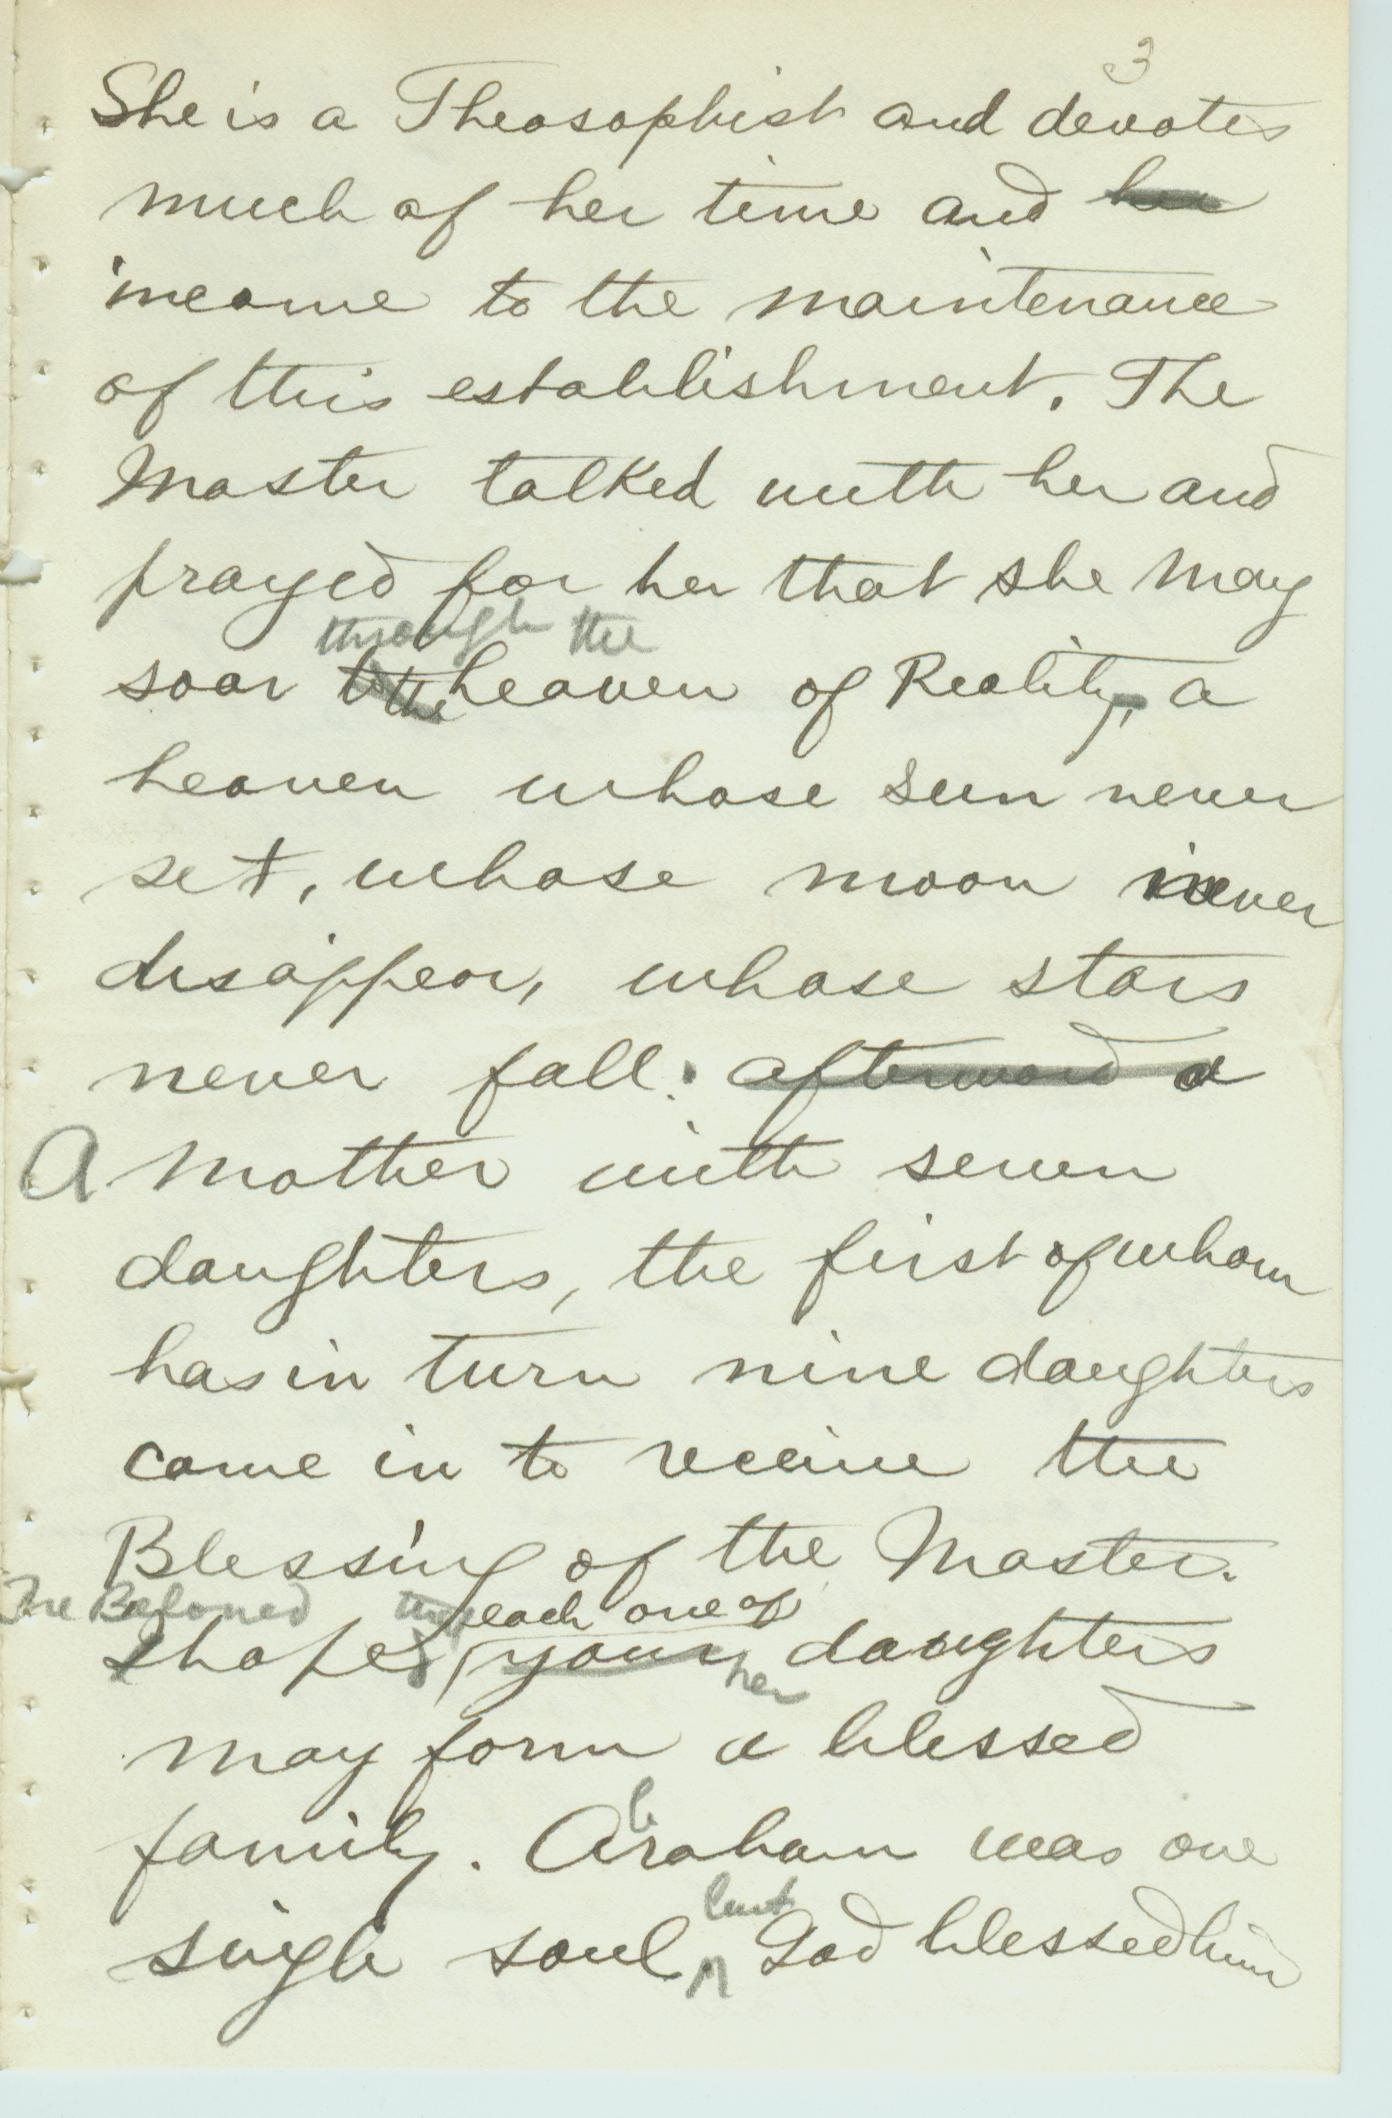 3
She is a Theosophist and devotes
much of her time and her
income to the maintenance
of this establishment. The
Master talked with her and
prayed for her that she may
through the
soar to the heaven of Reality, a
heaven whose sun never
set, whose moon never
disappear, whose stars
never fall. afterward a
A Mother with seven
daughters, the first of whom
has in turn nine daughters
come in to receive the
Blessing of the Master.
The Beloved each one of
hopes your her daughters
may form a blessed
b
family. Araham was one
but
single soul God blessed him